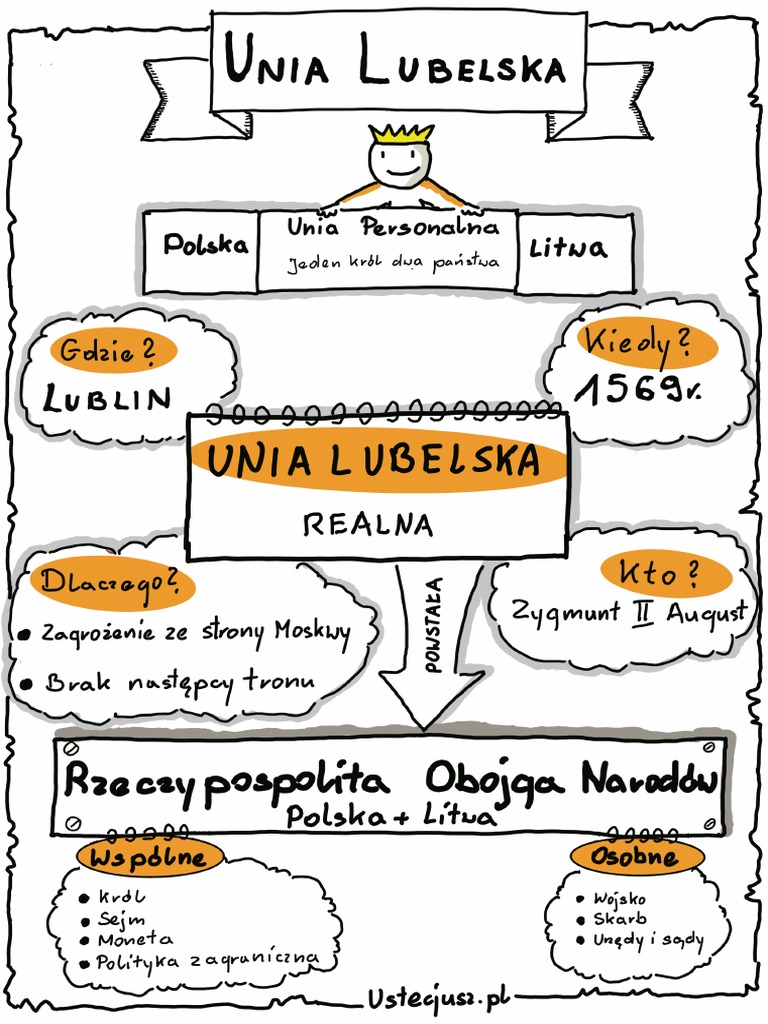 UNIA LUBELSKA
Polska
Unia Personalna
Jeden król dwa państwa
Litwa
Gdzie?
LUBLIN
Kiedy?
1569r.
UNIA LUBELSKA
REALNA
Dlaczego?
• Zagrożenie ze strony Moskwy
• Brak następcy tronu
POWSTAŁA
Kto?
Zygmunt II August
Rzeczypospolita Obojga Narodów
Polska + Litwa
Wspólne
• Król
• Sejm
• Moneta
• Polityka zagraniczna
Osobne
• Wojsko
• Skarb
• Urzędy i sądy
Ustecjusz.pl